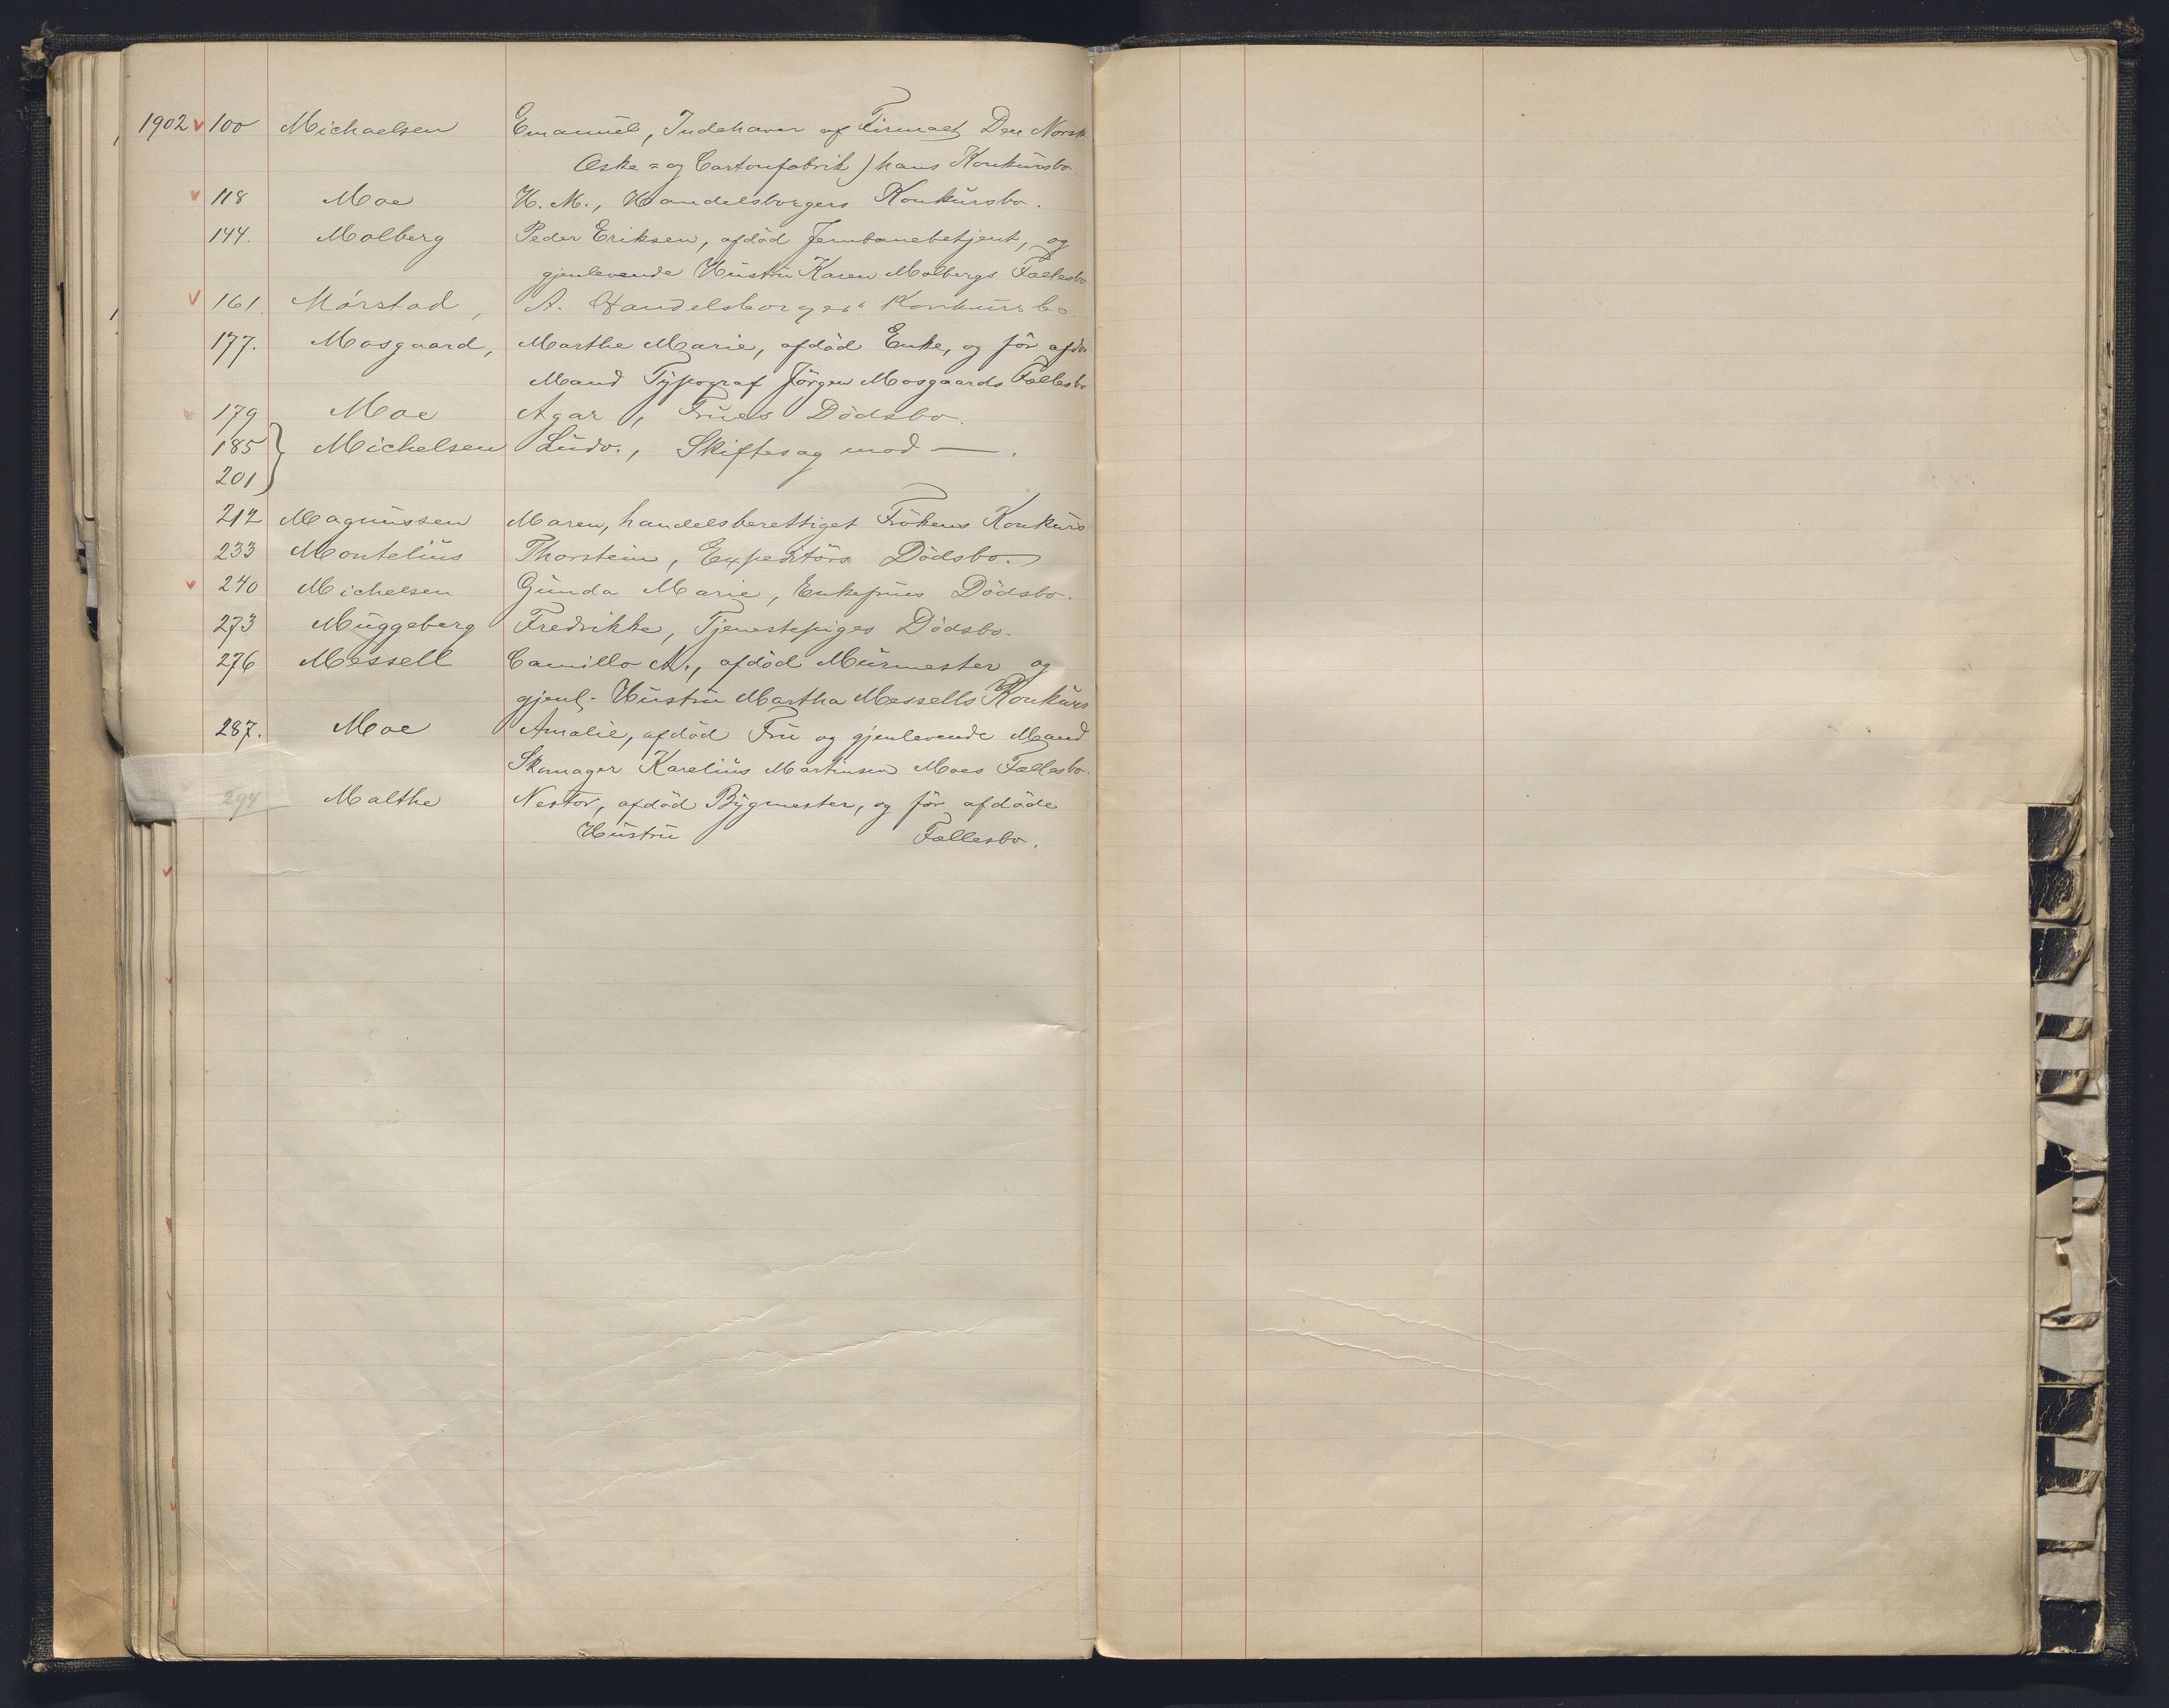 1902 100 Michaelsen Emanuel, Indehaver af Firmaet Den Norsk
Æske= og Cartonfabrik) hans Konkursbo.
118 Moe H. M., Handelsborgers Konkursbo.
144. Molberg Peder Eriksen, afdöd Jernbanebetjent, og
gjenlevende Hustru Karen Molbergs Fællesbo
161. Mörstad, A. Handelsborgers Konkursbo
177. Mosgaard, Marthe Marie, afdöd Enke, og för afdö
Mand Typograf Jörgen Mosgaards Fællesbo
179 Moe Agar, Frues Dödsbo.
185 } Michelsen Ludv., Skiftesag mod —.
201
212 Magnussen Maren, handelsberettiget Frökens Konkurs
233 Montelius Thorstein, Expeditörs Dödsbo.
240 Michelsen Gunda Marie, Enkefrues Dödsbo.
273 Muggeberg Fredrikke, Tjenestepiges Dödsbo.
276 Messell Camillo A., afdöd Murmester og
gjenl. Hustru Martha Messells Konkurs
287. Moe Amalie, afdöd Fru og gjenlevende Mand
Skomager Karelius Martinsen Moes Fællesbo.
294 Malthe Nestor, afdöd Bygmester, og för afdöde
Hustru Fællesbo.